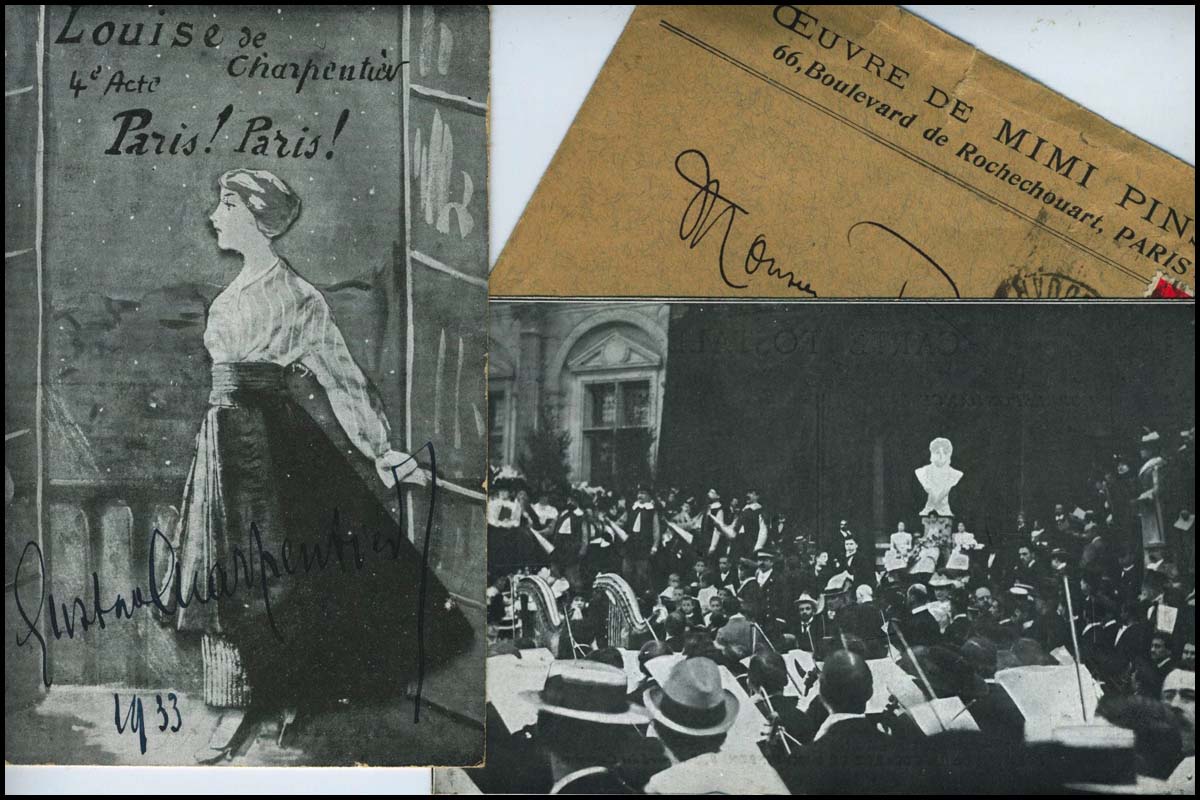 Louise de
Charpentier
4e Acte
Paris! Paris!
Gustave Charpentier
1933
ŒUVRE DE MIMI PINS
66, Boulevard de Rochechouart, PARIS
Monsieur
CARTE POSTALE